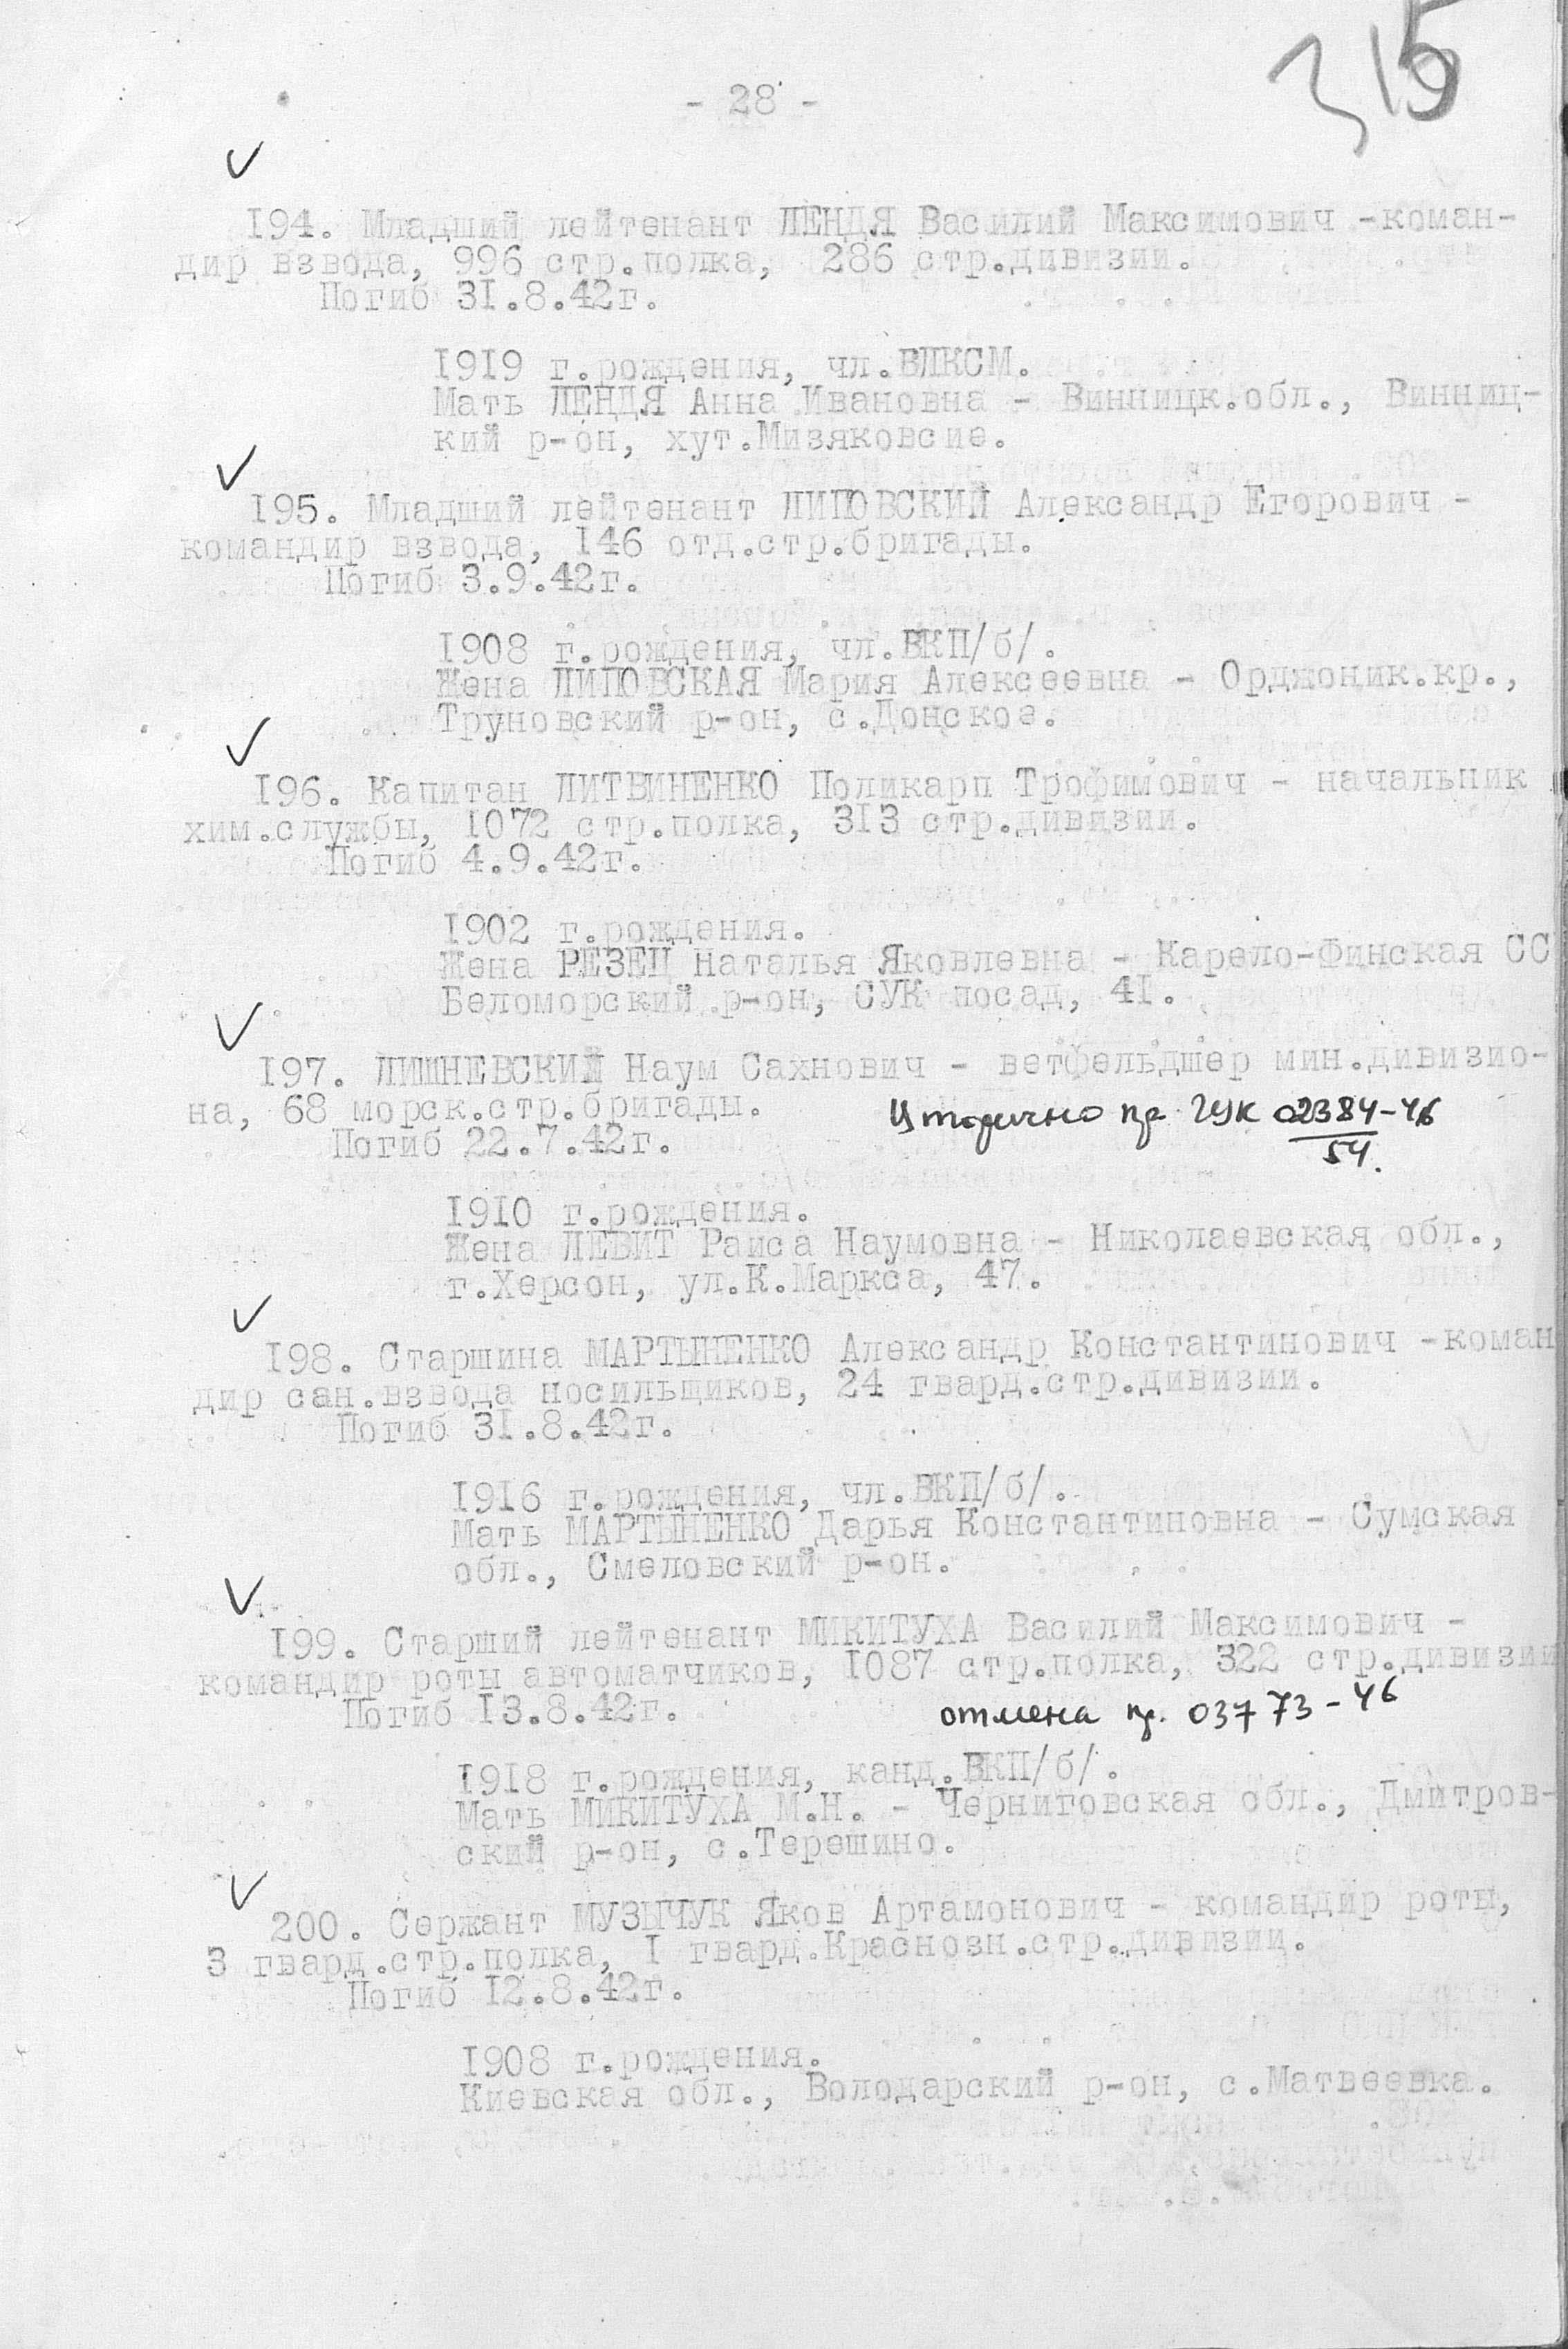 315
- 28 -
194. Младший лейтенант ЛЕНДЯ Василий Максимович -коман-
дир взвода, 996 стр.полка, 286 стр.дивизии.
Погиб 31.8.42г.
1919 г.рождения, чл.ВЛКСМ.
Мать ЛЕНДЯ Анна Ивановна - Винницк.обл., Винниц-
кий р-он, хут.Мизяковсие.
195. Младший лейтенант ЛИПОВСКИЙ Александр Егорович -
командир взвода, 146 отд.стр.бригады.
Погиб 3.9.42г.
1908 г.рождения, чл.ВКП/б/.
Жена ЛИПОВСКАЯ Мария Алексеевна - Орджоник.кр.,
Труновский р-он, с.Донское.
196. Капитан ЛИТВИНЕНКО Поликарп Трофимович - начальник
хим.службы, 1072 стр.полка, 313 стр.дивизии.
Погиб 4.9.42г.
1902 г.рождения.
Жена РЕЗЕЦ Наталья Яковлевна - Карело-Финская СС
Беломорский р-он, СУК посад, 41.
197. ЛИШНЕВСКИЙ Наум Сахнович - ветфельдшер мин.дивизио-
на, 68 морск.стр.бригады.
пр. ГУК 02384-46
54.
Погиб 22.7.42г.
1910 г.рождения.
Жена ЛЕВИТ Раиса Наумовна - Николаевская обл.,
г.Херсон, ул.К.Маркса, 47.
198. Старшина МАРТЫНЕНКО Александр Константинович -коман
дир сан.взвода носильщиков, 24 гвард.стр.дивизии.
Погиб 31.8.42г.
1916 г.рождения, чл.ВКП/б/.
Мать МАРТЫНЕНКО Дарья Константиновна - Сумская
обл., Смеловский р-он.
199. Старший лейтенант МИКИТУХА Василий Максимович -
командир роты автоматчиков, 1087 стр.полка, 322 стр.дивизии
Погиб 13.8.42г.
отмена пр. 03773-46
1918 г.рождения, канд.ВКП/б/.
Мать МИКИТУХА М.Н. - Черниговская обл., Дмитров-
ский р-он, с.Терешино.
200. Сержант МУЗЫЧУК Яков Артамонович - командир роты,
3 гвард.стр.полка, 1 гвард.Краснозн.стр.дивизии.
Погиб 12.8.42г.
1908 г.рождения.
Киевская обл., Володарский р-он, с.Матвеевка.